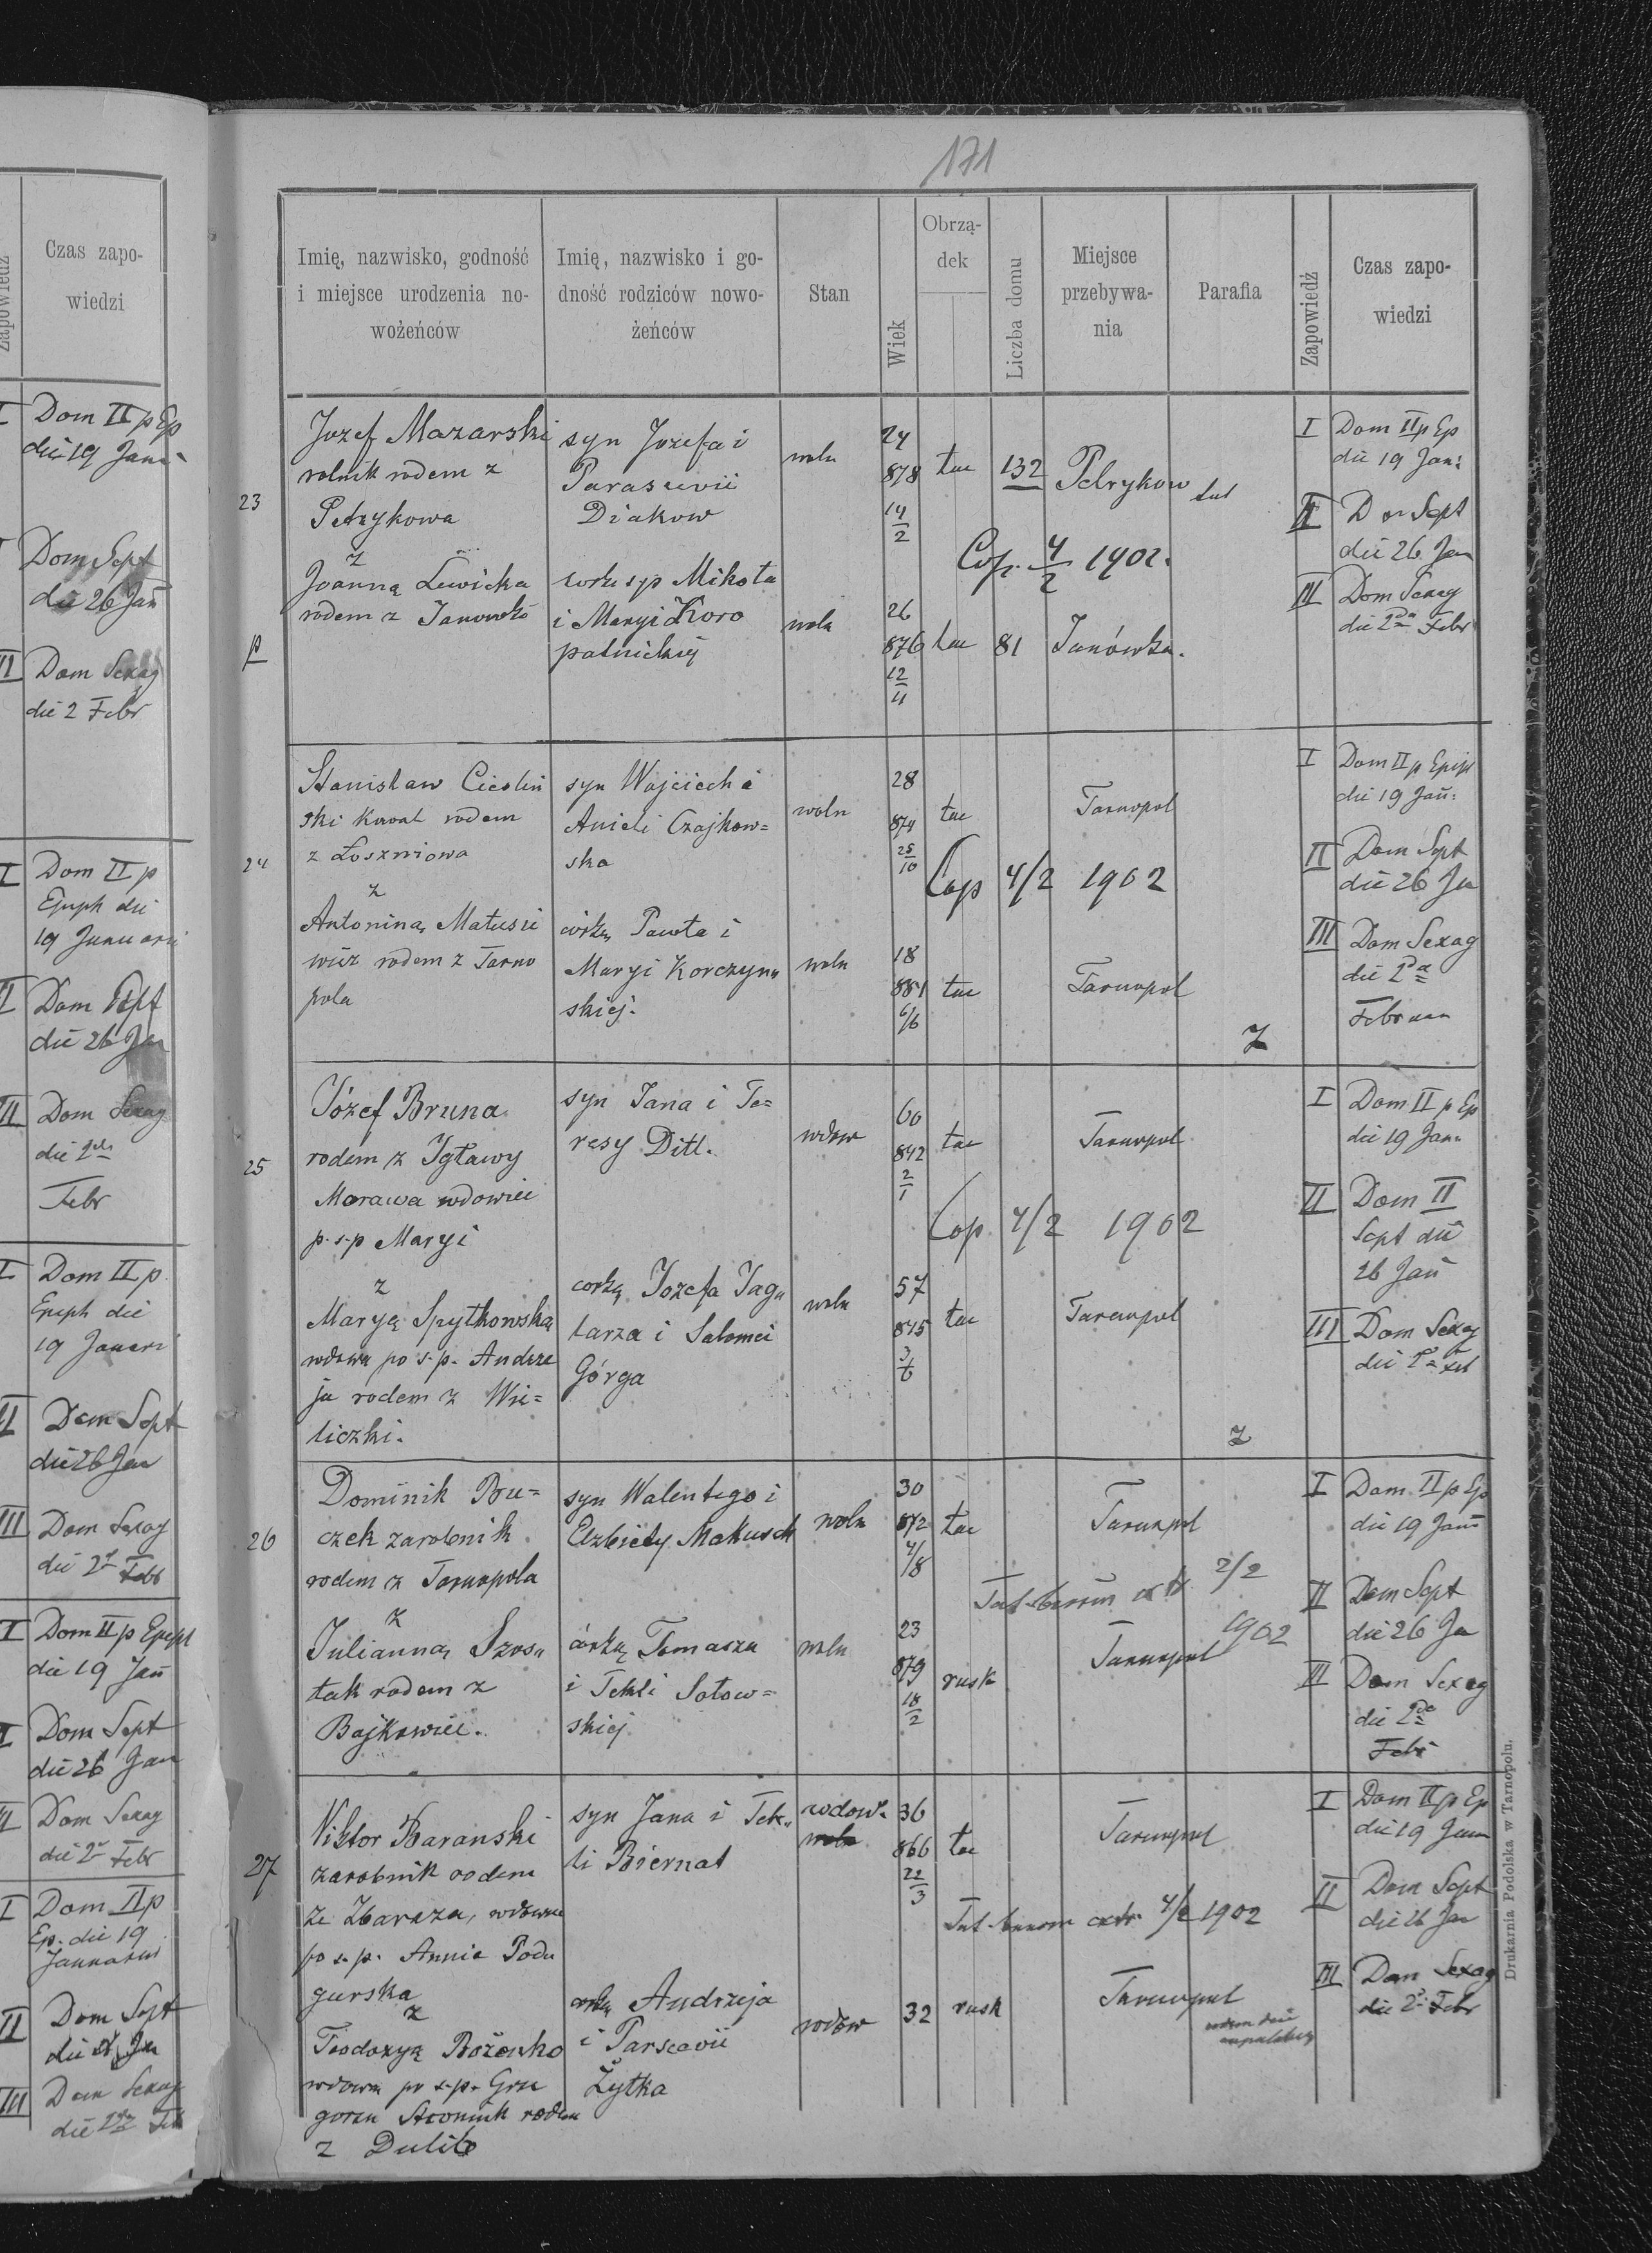 Zapowiedź
Czas zapo-
wiedzi
I Dom II p Ep
die 19 Jan
Dom Sept
die 26 Jan
II Dom Sexag
die 2 Febr
I Dom II p
Epiph die
19 Januari
Dom Sept
die 26 Jan
II Dom Sexag
die 2
Febr
I Dom II p
Epiph die
19 Januari
II Dom Sept
die 26 Jan
III Dom Sexag
die 2 Febr
I Dom II p Epiph
die 19 Jan
I Dom Sept
die 26 Jan
Dom Sexag
die 2 Febr
I Dom II p
Ep. die 19
Januarii
II Dom Sept
die Jan
III Dom Sexag
die 2 Feb
171
Imię, nazwisko, godność
i miejsce urodzenia no-
wożeńców
Imię, nazwisko i go-
dność rodziców nowo-
żeńców
Stan
Wiek
Obrzą-
dek
Liczba domu
Miejsce
przebywa-
nia
Parafia
Zapowiedź
Czas zapo-
wiedzi
23
Jozef Mazarski
rolnik rodem z
Petrykowa
z
Joanną Lewicka
rodem z Janowki
syn Jozefa i
Parascevii
Diakow
corka sp Mikoła
i Maryi Koro
patnickiej
woln
woln
24
878
14/2
26
876
12/11
łac 132 Petrykow tut
Cop. 4/2 1902.
łac 81 Janówka.
I Dom II p Ep
die 19 Jan:
II Dom Sept
die 26 Jan
III Dom Sexag
die 2da Febr
24
Stanisław Cieslin
ski Kowal rodem
z Łoszniowa
z
Antoniną Matusie
wicz rodem z Tarno
pola
syn Wojciech i
Anieli Czajkow=
ska
córką Pawła i
Maryi Korczyn
skiej.
woln
woln
28
874
25/10
18
881
6/6
łac Tarnopol
Cop 4/2 1902
łac Tarnopol
Z
I Dom II p Epiph
die 19 Jan:
II Dom Sept
die 26 Ja
III Dom Sexag
die 2da
Februar
25
Józef Bruna
rodem z Igławy
Morawa wdowiec
p. s.p Maryi
z
Maryą Spytkowską
wdową po s.p. Andrze
ja rodem z Wie=
liczki.
syn Jana i Te=
resy Ditl.
corką Jozefa Jag
larza i Salomei
Górga
wdow
woln
60
842
2/1
57
845
3/6
łac Tarnopol
Cop 4/2 1902
łac Tarnopol
Z
I Dom II p Ep
die 19 Jan
II Dom II
Sept die
26 Jan
III Dom Sexag
die 2da Feb
26
Dominik Bu=
czek zarobnik
rodem z Tarnopola
z
Julianną Szos
tak rodem z
Bajkowiec.
syn Walentego i
Elzbiety Makusch
córką Tomasza
i Tekli Sotow=
skiej
woln
woln
30
872
4/8
23
879
18/2
łac Tarnopol
2/2
1902
rusk Tarnopol
I Dom II p Ep
die 19 Jan
II Dom Sept
die 26 Ja
II Dom Sexag
die 2da
Febr
27
Wiktor Baranski
zarobnik rodem
ze Zbaraza, wdowiec
po s.p. Annie Podu
gurska
z
Teodozyą Bożenko
wdowa po s.p. Grze
gorzu rodem
z Dulib
syn Jana i Tek
li Biernat
corką Andrzeja
i Parscevii
Żytka
wdow.
woln
wdow
36
866
22/3
32
łac Tarnopol
4/2 1902
rusk Tarnopol
I Dom II p Ep
die 19 Jan
II Dom Sept
die 26 Jan
III Dom Sexag
die 2 Febr
Drukarnia Podolska w Tarnopolu.